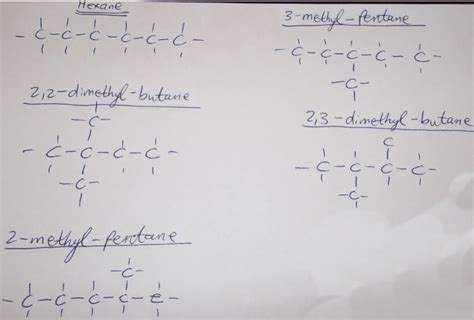 Hexane
- C - C - C - C - C - C -
3-methyl-pentane
- C - C - C - C - C -
- C -
2,2-dimethyl-butane
- C -
- C - C - C - C -
- C -
2,3-dimethyl-butane
C
- C - C - C - C -
- C -
2-methyl-pentane
- C -
- C - C - C - C - C -